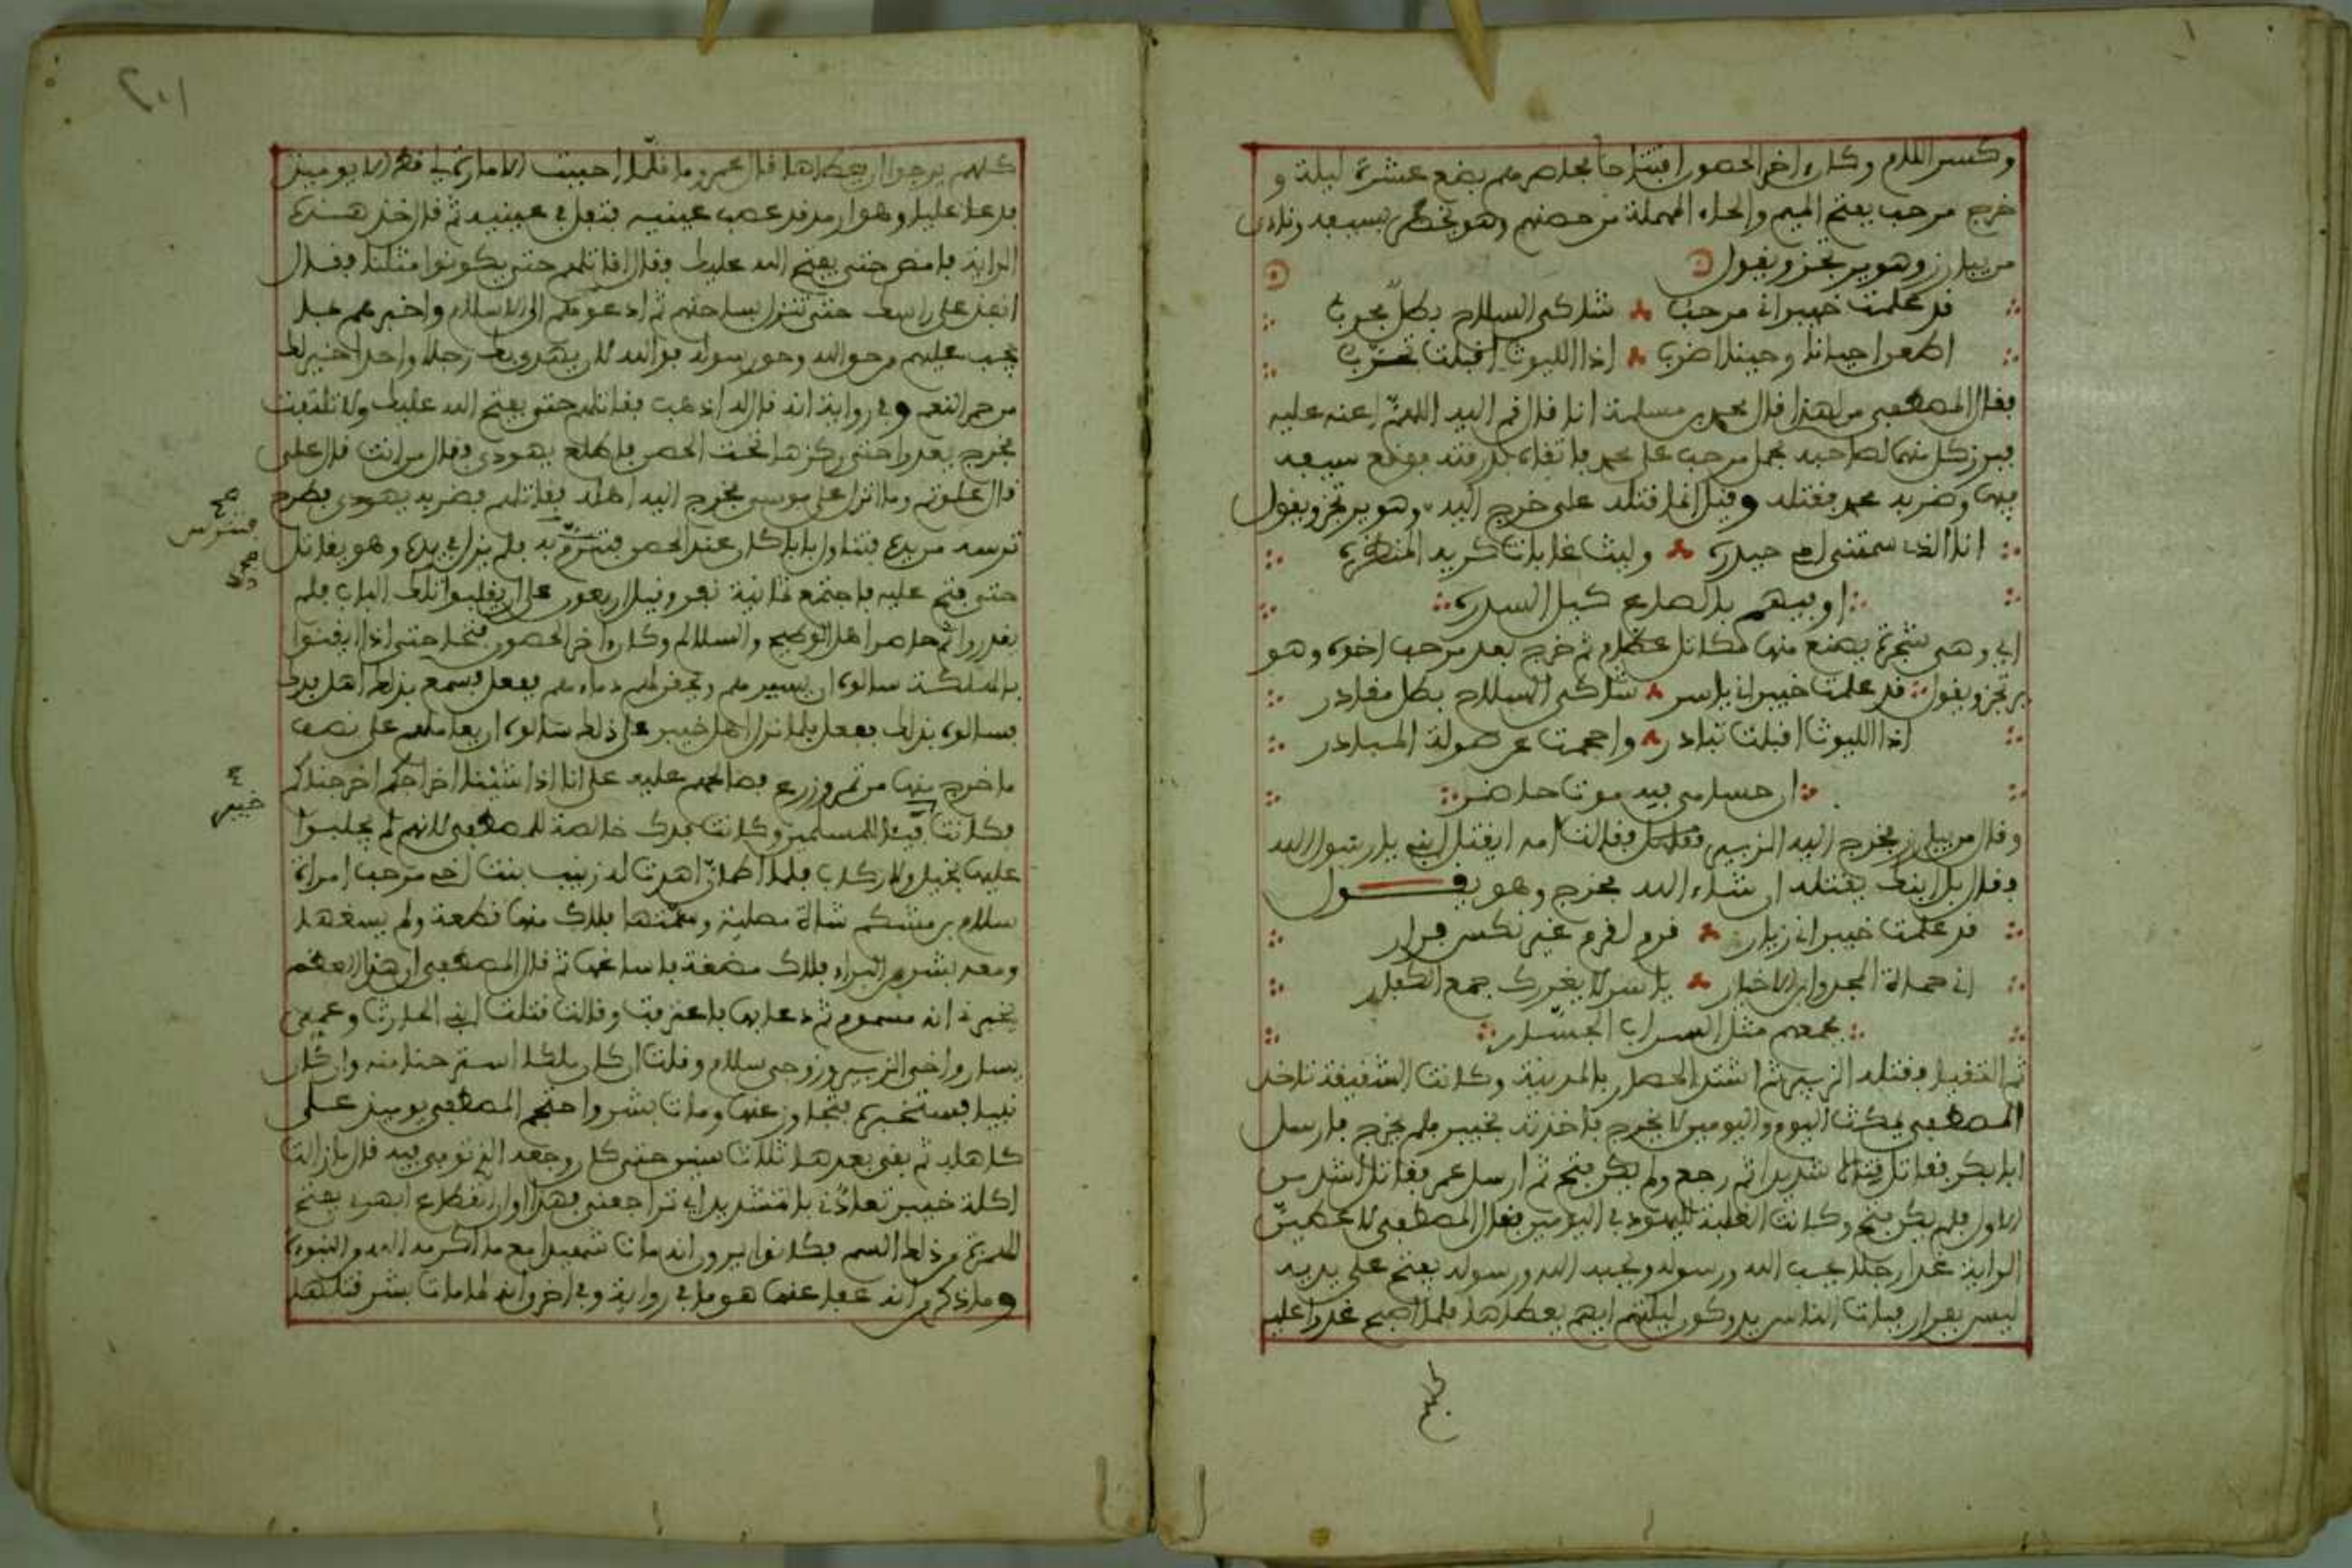 وكسر اللام وكان ءاخر الحصون افتتاحا فحاصرهم بضع عشرة ليلة و
خرج مرحب بفتح الميم والحاء المهملة من حصنهم وهو يخطر بسيفه ونادى
من يبارز وهو يرتجز ويقول
قد علمت خيبر اني مرحب شاكي السلاح بطل مجرب
اطعن احيانا وحينا اضرب اذا الليوث اقبلت تحرب
فقال المصطفى من لهذا قال محمد بن مسلمة انا قال قم اليه اللهم اعنه عليه
فبرز كل منهما لصاحبه فحمل مرحب على محمد فاتقاه بدرقته فوقع سيفه
فيها وضربه محمد فقتله وقيل انما قتله علي خرج اليه وهو يرتجز ويقول
انا الذي سمتني امي حيدره وليث غابات كريه المنظره
اوفيهم بالصاع كيل السندره
اي وهي شجرة يصنع منها مكائل عظام ثم خرج بعد مرحب اخوه وهو
يرتجز ويقول قد علمت خيبر اني ياسر شاكي السلاح بطل مغادر
اذا الليوث اقبلت تبادر واحجمت عن صولة المبادر
ان حسامي فيه موت حاضر
وقال من يبارز فخرج اليه الزبير فقالت امه ايقتل ابني يا رسول الله
فقال بل ابنك يقتله ان شاء الله فخرج وهو يقول
قد علمت خيبر اني زبار قرم لقرم غير نكس فرار
ابن حماة المجد وابن الاخيار ياسر لا يغررك جمع الكفار
فجمعهم مثل السراب الجسار
ثم التقيا فقتله الزبير ثم اشتد الحصار بالمدينة وكانت الشقيقة تاخذ
المصطفى فيمكث اليوم واليومين لا يخرج فاخذته بخيبر فلم يخرج فارسل
ابا بكر فقاتل قتالا شديدا ثم رجع ولم يكن فتح ثم ارسل عمر فقاتل اشد من
الاول فلم يكن فتح وكانت الغلبة لليهود في اليومين فقال المصطفى لاعطين
الراية غدا رجلا يحب الله ورسوله ويحبه الله ورسوله يفتح على يديه
ليس بفرار فبات الناس يدوكون ليلتهم ايهم يعطاها فلما اصبح غدوا عليه
كلهم
كلهم يرجوا ان يعطاها قال عمر وما احببت الامارة قط الا يوميذ
فدعا عليا وهو ارمد قد عصب عينيه فتفل في عينيه ثم قال خذ هذه
الراية فامض حتى يفتح الله عليك فقال اقاتلهم حتى يكونوا مثلنا فقال
انفذ على رسلك حتى تنزل بساحتهم ثم ادعهم الى الاسلام واخبرهم بما
يجب عليهم من حق الله وحق رسوله فوالله لان يهدي بك رجلا واحدا خير لك
من حمر النعم وفي رواية انه قال له اذهب فقاتلهم حتى يفتح الله عليك ولا تلتفت
فخرج يعدوا حتى ركزها تحت الحصن فاطلع يهودي فقال من انت قال علي
قال علوتم وما انزل على موسى فخرج اليه اهله فقاتلهم فضربه يهودي فطرح
ترسه من يده فتناول بابا كان عند الحصن فتترس به فلم يزل في يده وهو يقاتل
حتى فتح عليه فاجتمع ثمانية نفر وقيل اربعون على ان يقلبوا ذلك الباب فلم
يقدروا ثم حاصر اهل الوطيح والسلالم وكان ءاخر الحصون فتحا حتى اذا ايقنوا
بالهلكة سالوه ان يسيرهم ويحقن لهم دماءهم ففعل فسمع بذلك اهل فدك
فسالوه بذلك ففعل فلما نزل اهل خيبر على ذلك سالوه ان يعاملهم على نصف
ما خرج منها من تمر وزرع فصالحهم عليه على انا اذا شئنا اخراجكم اخرجناكم
فكانت فيئا للمسلمين وكانت فدك خالصة للمصطفى لانهم لم يجلبوا
عليها بخيل ولا ركاب فلما اطمان اهدت له زينب بنت اخي مرحب امراة
سلام بن مشكم شاة مصلية وسمتها فلاك منها قطعة ولم يسغها
ومعه بشر بن البراء فلاك مضغة فاساغها ثم قال المصطفى ان هذا العظم
يخبرني انه مسموم ثم دعا بها فاعترفت وقالت قتلت ابي الحارث وعمي
يسار واخي الزبير وزوجي سلام وقلت ان كان ملكا استرحنا منه وان كان
نبيا فستخبره فتجاوز عنها ومات بشر واحتجم المصطفى يوميذ على
كاهله ثم بقي بعدها ثلاث سنين حتى كان وجعه الذي توفي فيه قال ما زالت
اكلة خيبر تعادني بالتشديد اي تراجعني فهذا اوان انقطاع ابهري بفتح
الهمزة من ذلك السم فكانوا يرون انه مات شهيدا مع ما اكرمه الله من النبوءة
وما ذكر من انه عفا عنها هو ما في رواية وفي اخرى انه لما مات بشر قتلها
صح
خيبر